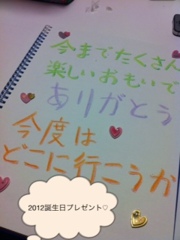 今までたくさん
楽しいおもいで
ありがとう
今度は
どこに行こうか
2012誕生日プレゼント♡